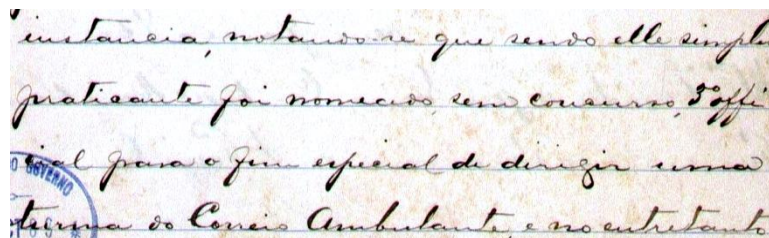 instancia, notando-se que sendo elle simples
praticante foi nomeado, sem concurso, 3º offi
cial para o fim especial de dirigir uma
turma do Correio Ambulante, e no entretanto
GOVERNO